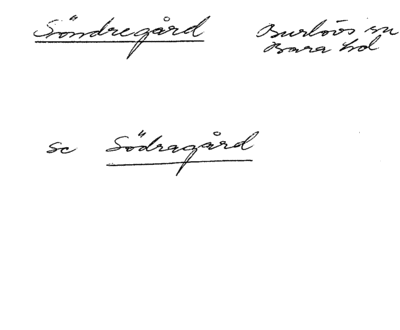 Söndregård
Burlövs sn
Bara hd
se Södragård